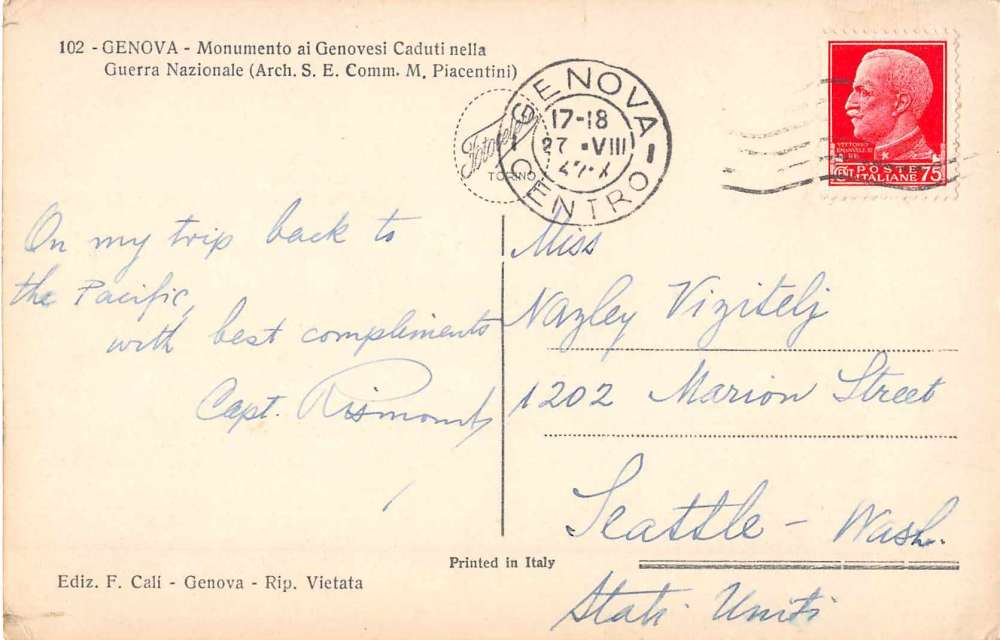 102 - GENOVA - Monumento ai Genovesi Caduti nella
Guerra Nazionale (Arch. S. E. Comm. M. Piacentini)
Fotocelere
TORINO
GENOVA
17-18
27 · VIII
CENTRO
VITTORIO
EMANUELE III
RE
POSTE
ITALIANE
CENT 75
On my trip back to
the Pacific,
with best compliments
Capt.
Miss
Nazley Vizitelj
1202 Marion Street
Seattle - Wash.
Stati Uniti
Printed in Italy
Ediz. F. Calí - Genova - Rip. Vietata